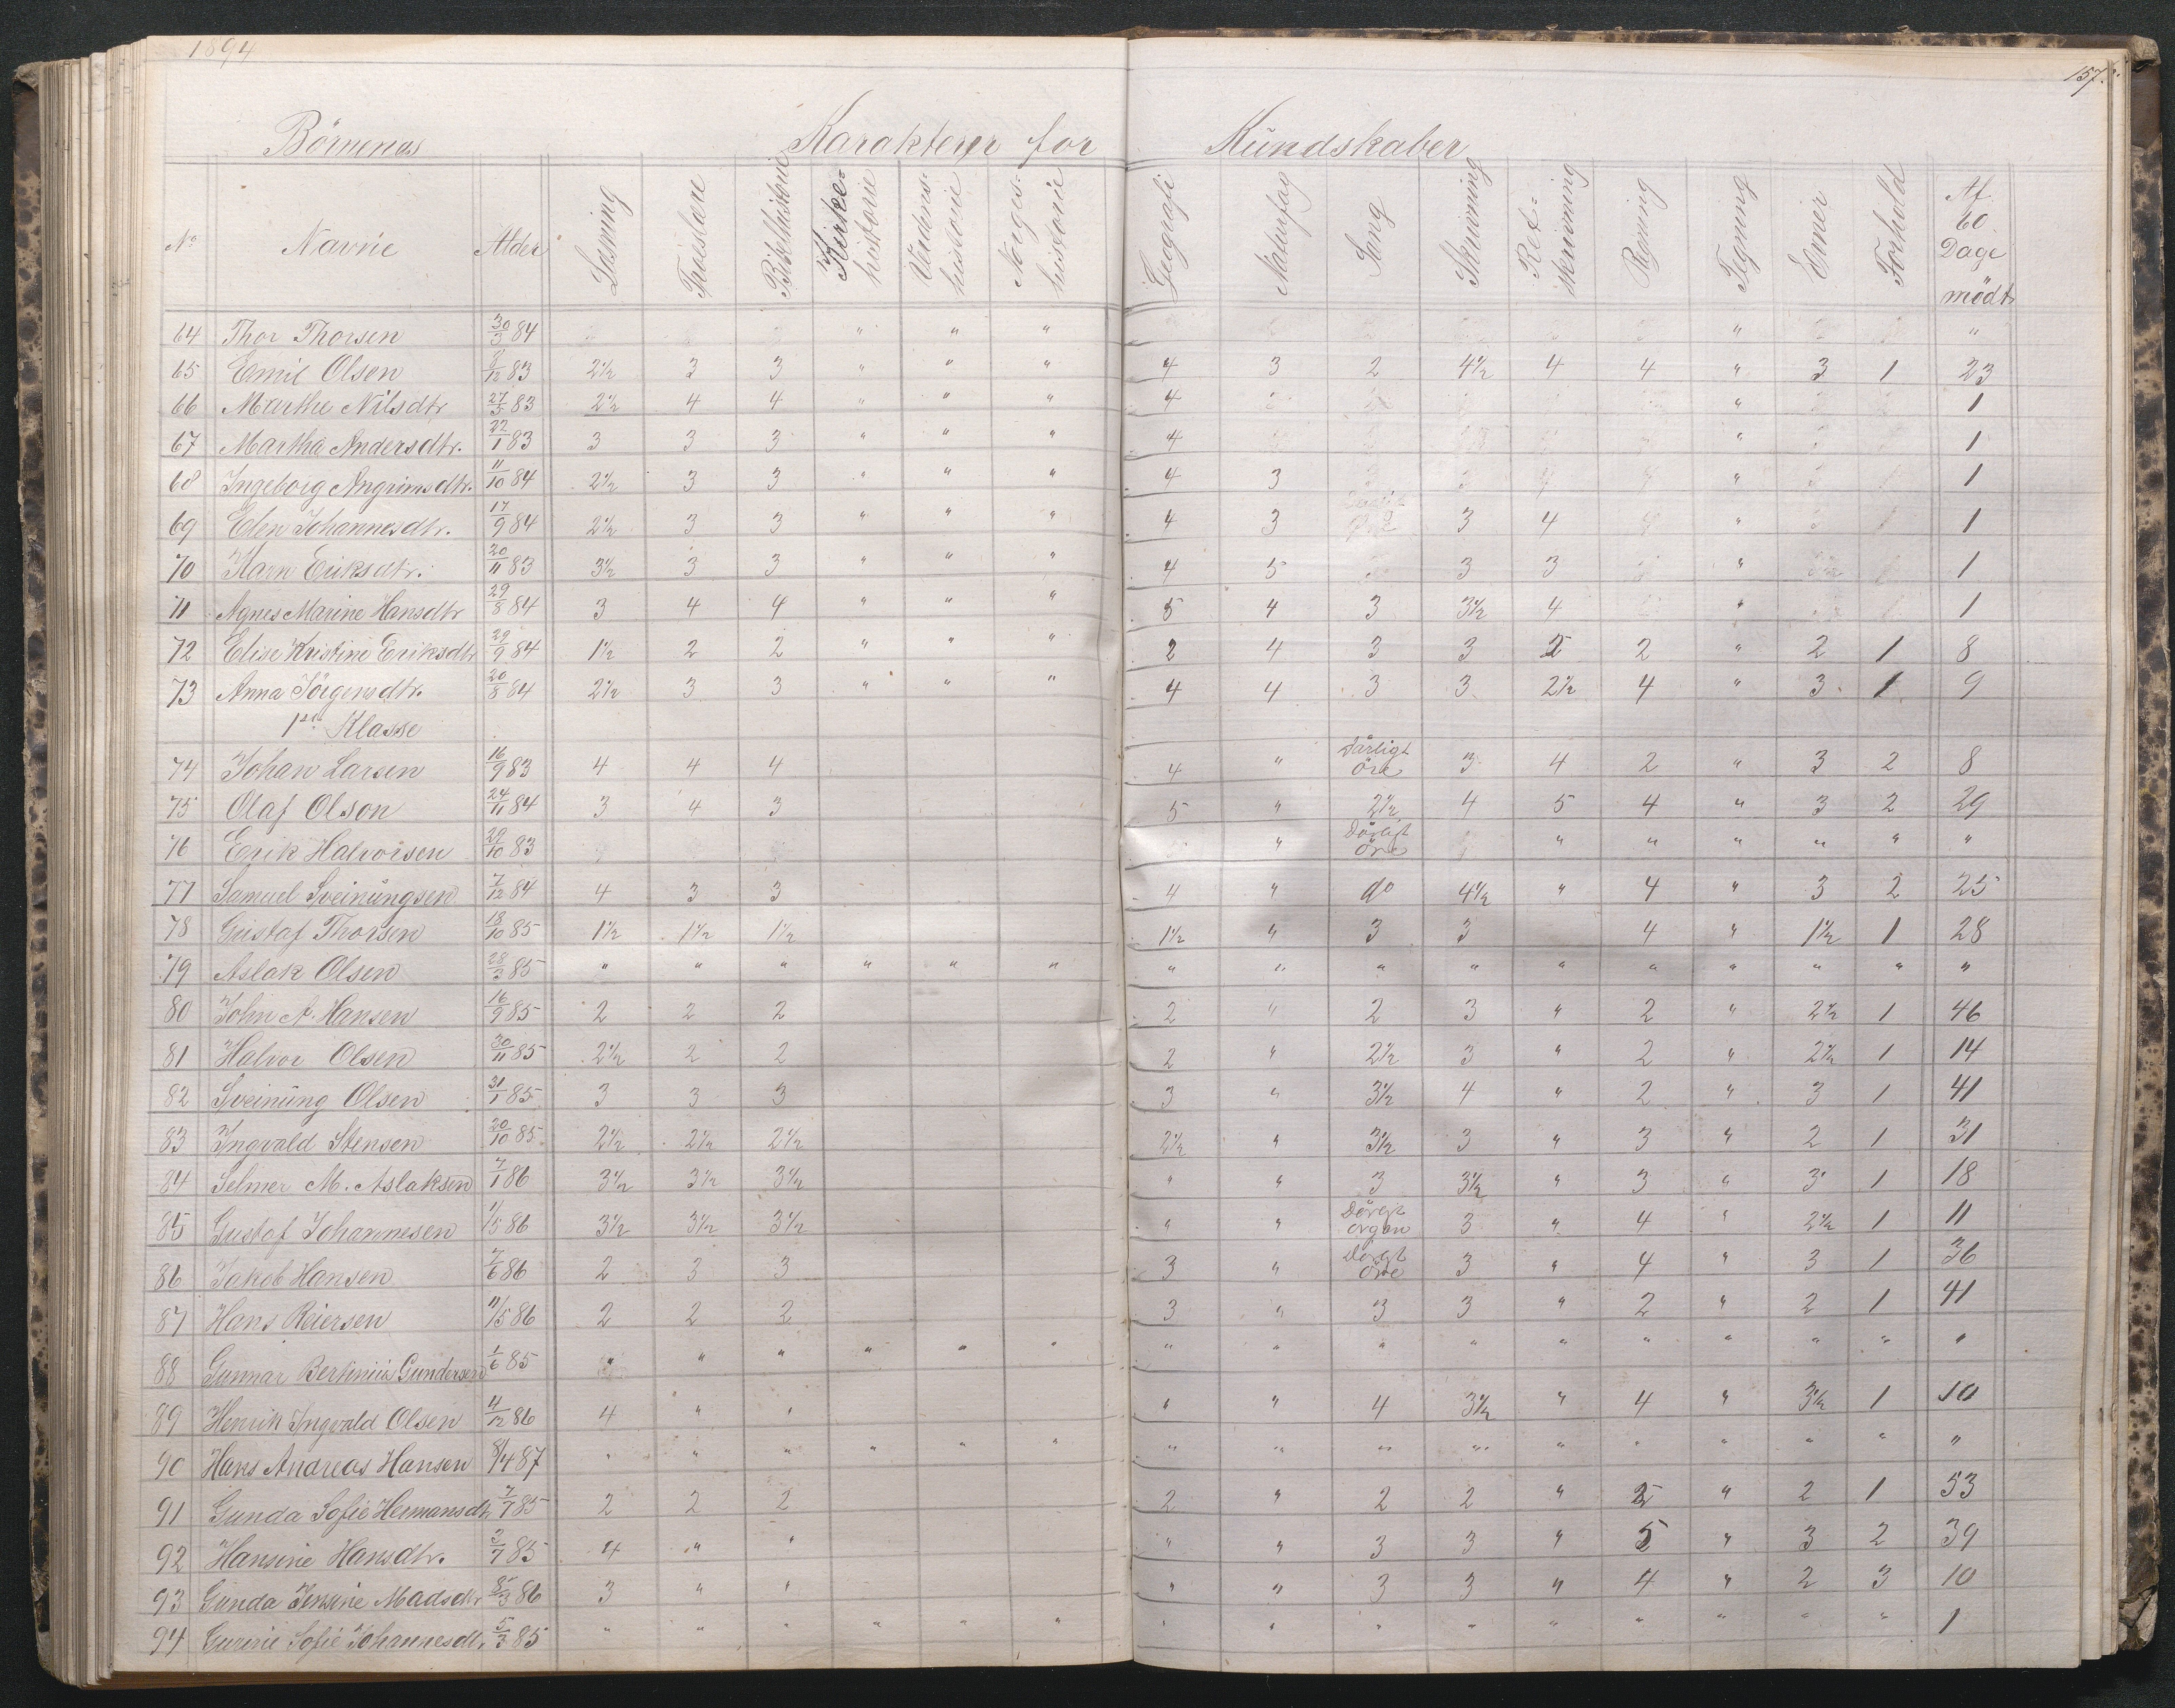 1894
157.
Börnenes Karakterer for Kundskaber
No Navne Alder Læsning Troeslære Bibelhistorie Kirke-historie Verdens-historie Norges-historie Geografi Naturfag Sang Skrivning Ret-skrivning Regning Tegning Evner Forhold Af 60 Dage mödt
64 Thor Thorsen 30/3 84 " " " " "
65 Emil Olsen 8/12 83 2½ 3 3 " " " 4 3 2 4½ 4 4 " 3 1 23
66 Marthe Nilsdtr 27/5 83 2½ 4 4 " " " 4 " 1
67 Martha Andersdtr. 22/1 83 3 3 3 " " " 4 " 1
68 Ingeborg Angrimsdtr. 11/10 84 2½ 3 3 " " " 4 3 " 1
69 Elen Johannesdtr. 17/9 84 2½ 3 3 " " " 4 3 3 4 " 1
70 Karn Eriksdtr. 20/11 83 3½ 3 3 " " " 4 5 3 3 " 1
71 Agnes Marine Hansdtr 29/8 84 3 4 4 " " " 5 4 3 3½ 4 " 1
72 Elise Kristine Eriksdtr 29/9 84 1½ 2 2 " " " 2 4 3 3 2 " 2 1 8
73 Anna Jörgensdtr. 20/8 84 2½ 3 3 " " " 4 4 3 3 2½ 4 " 3 1 9
1ste Klasse
74 Johan Larsen 16/9 83 4 4 4 4 " Dårligt öre 3 4 2 " 3 2 8
75 Olaf Olson 24/11 84 3 4 3 5 " 2½ 4 5 4 " 3 2 29
76 Erik Halvorsen 29/10 83 " Dårligt öre " " " " " "
77 Samuel Sveinüngsen 7/12 84 4 3 3 4 " do 4½ " 4 " 3 2 25
78 Gustaf Thorsen 18/10 85 1½ 1½ 1½ 1½ " 3 3 4 " 1½ 1 28
79 Aslak Olsen 28/3 85 " " " " " " " " " " " " " " " "
80 John A. Hansen 16/9 85 2 2 2 2 " 2 3 " 2 " 2½ 1 46
81 Halvor Olsen 30/11 85 2½ 2 2 2 " 2½ 3 " 2 " 2½ 1 14
82 Sveinüng Olsen 31/1 85 3 3 3 3 " 3½ 4 " 2 " 3 1 41
83 Ingvald Stensen 20/10 85 2½ 2½ 2½ 2½ " 3½ 3 " 3 " 2 1 31
84 Selmer M. Aslaksen 7/1 86 3½ 3½ 3½ " " 3 3½ " 3 " 3 1 18
85 Gustaf Johannesen 1/5 86 3½ 3½ 3½ " " Dårligt organ 3 " 4 " 2½ 1 11
86 Jakob Hansen 7/6 86 2 3 3 3 " Dårligt öre 3 " 4 " 3 1 36
87 Hans Reiersen 11/5 86 2 2 2 3 " 3 3 " 2 " 2 1 41
88 Gunnar Bertinius Gundersen 1/6 85 " " " " " " " " " " " " " " " "
89 Henrik Ingvald Olsen 4/12 86 4 " " " " 4 3½ " 4 " 3½ 1 10
90 Hans Andreas Hansen 8/4 87 " " " " " " " " " " " " " " " "
91 Gunda Sofie Hermansdtr 7/7 85 2 2 2 2 " 2 2 " " 2 1 53
92 Hansine Hansdtr. 2/7 85 4 " " " " 3 3 " 5 " 3 2 39
93 Gunda Jensine Madsdtr 8/3 86 3 " " " " 3 3 " 4 " 2 3 10
94 Gurine Sofie Johannesdtr. 5/3 85 " " " " " " " " " " " " " " " 1